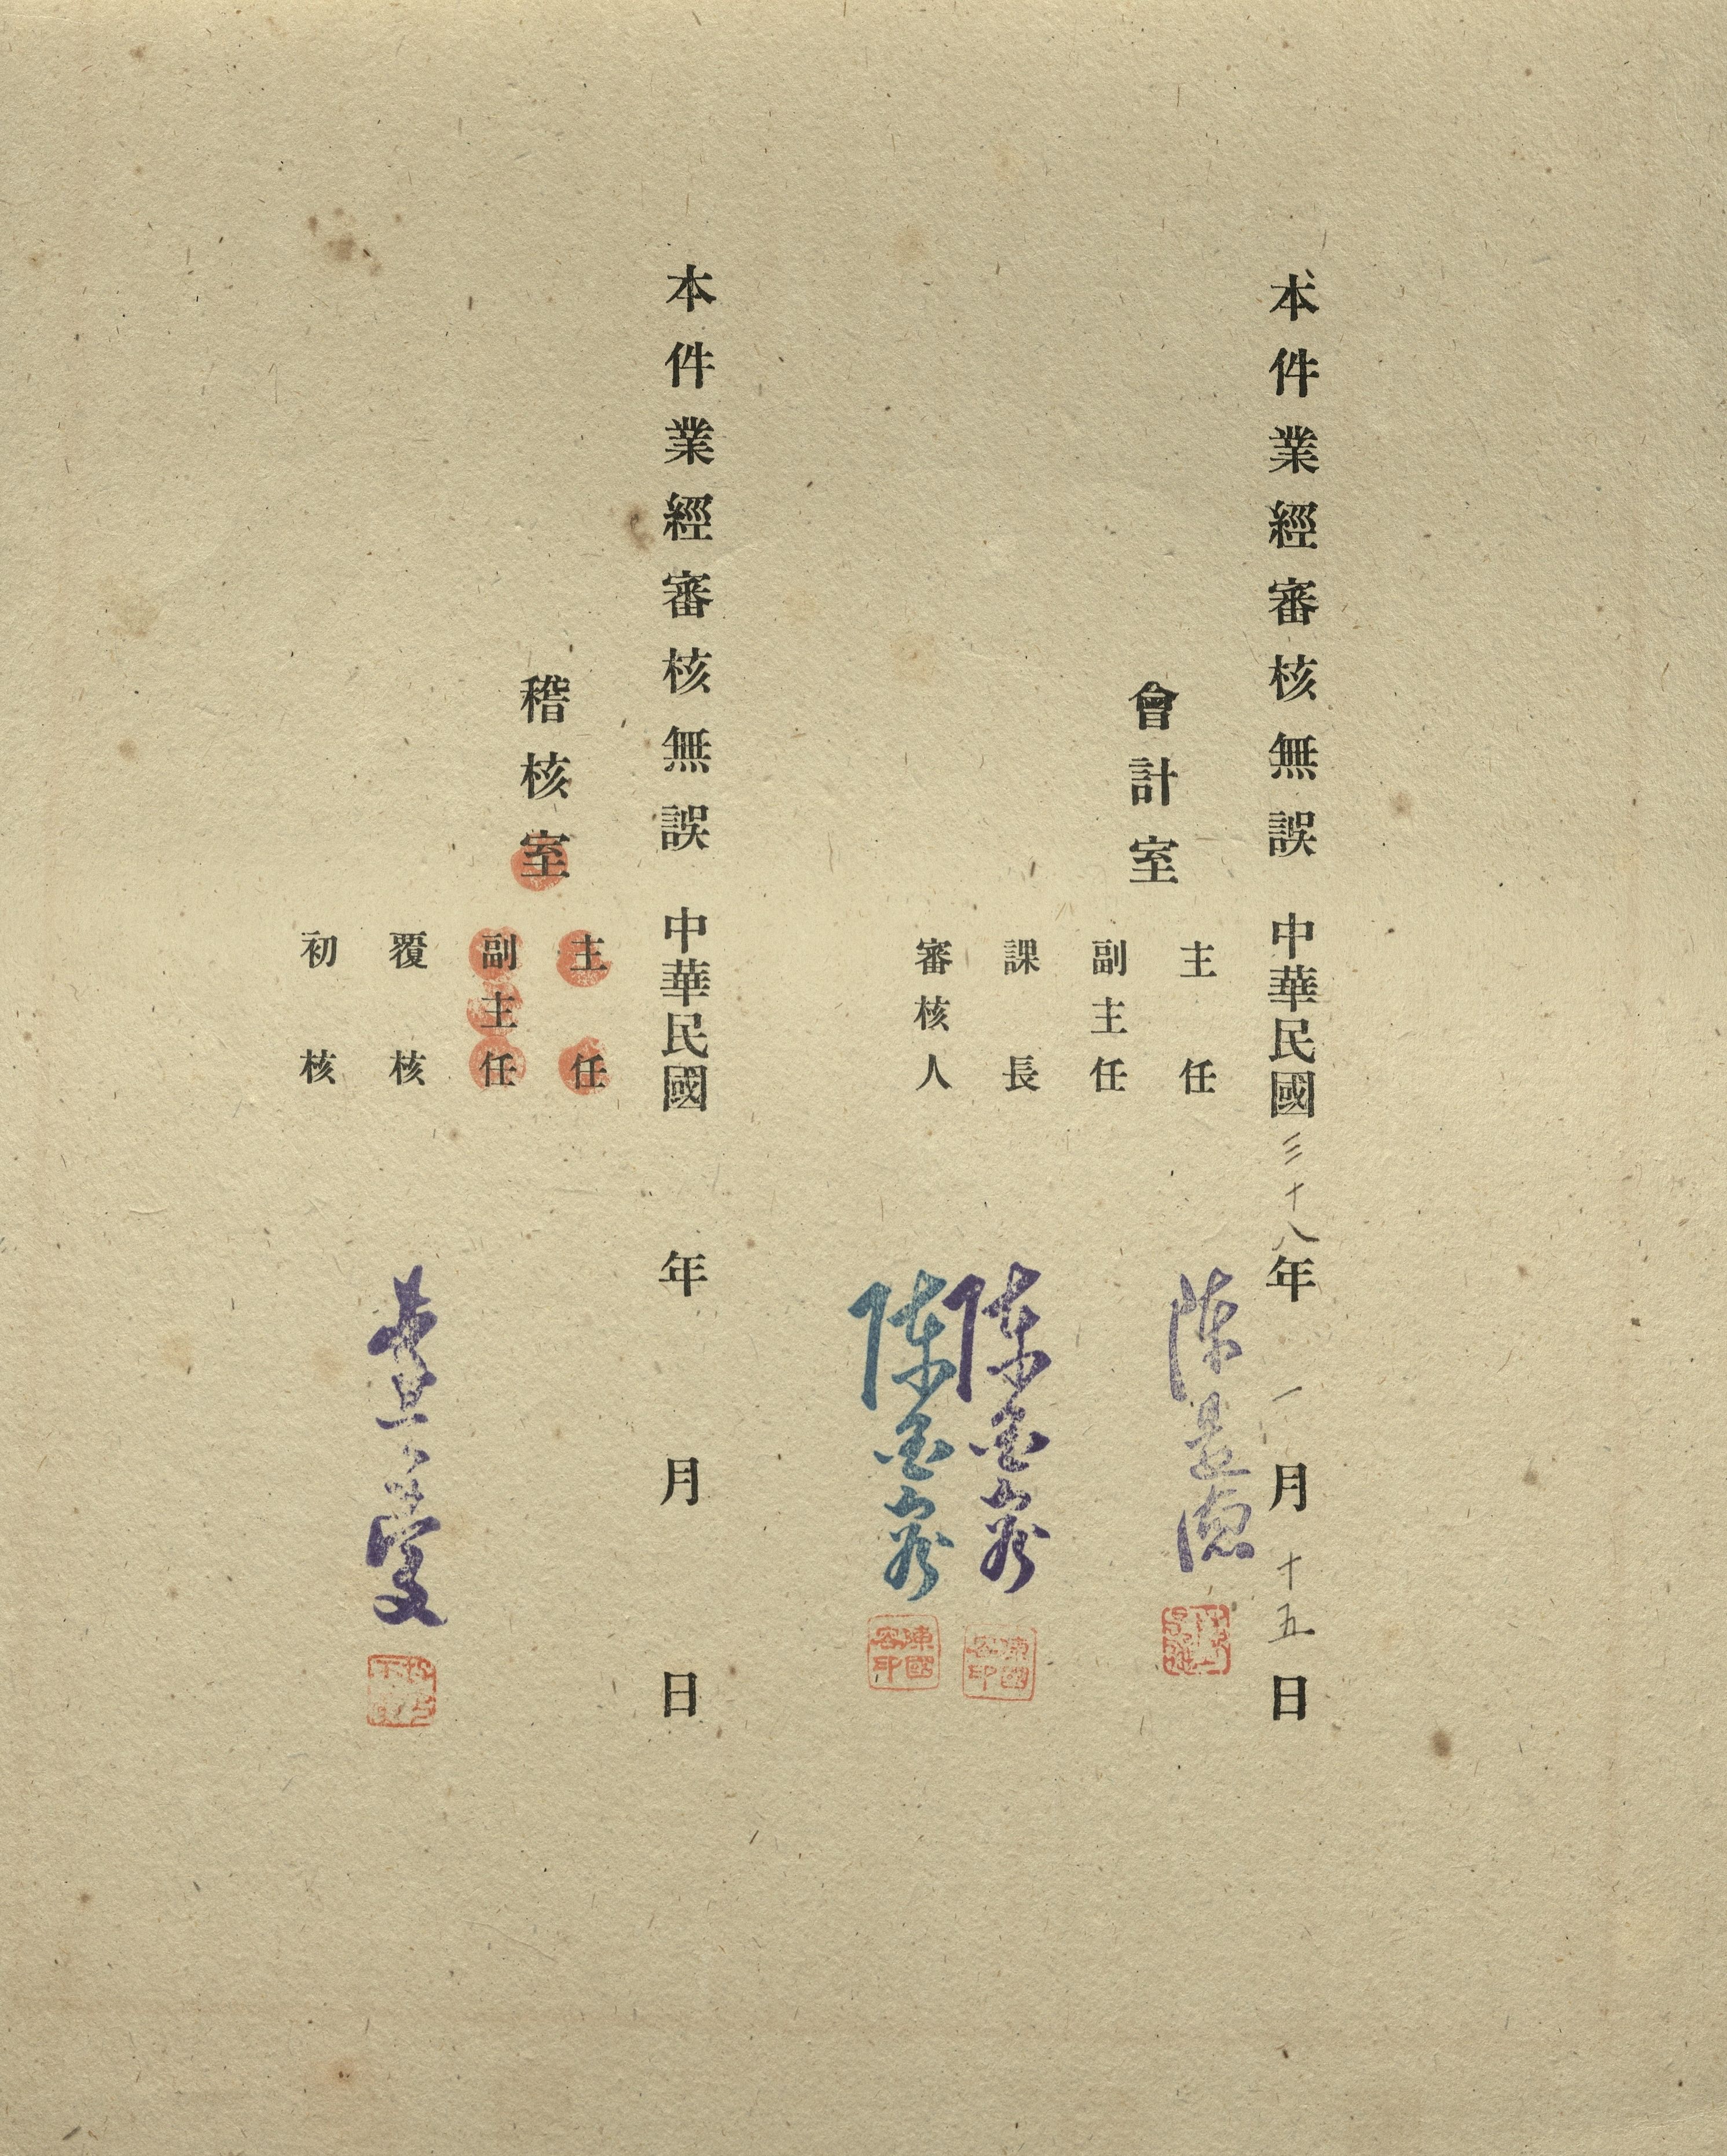 本件業經審核無誤 中華民國三十八年一月十五日
會計室
主任
副主任
課長 陳國容
審核人 陳國容
陳國容印
陳國容印
本件業經審核無誤 中華民國 年 月 日
稽核室
主任
副主任
覆核
初核